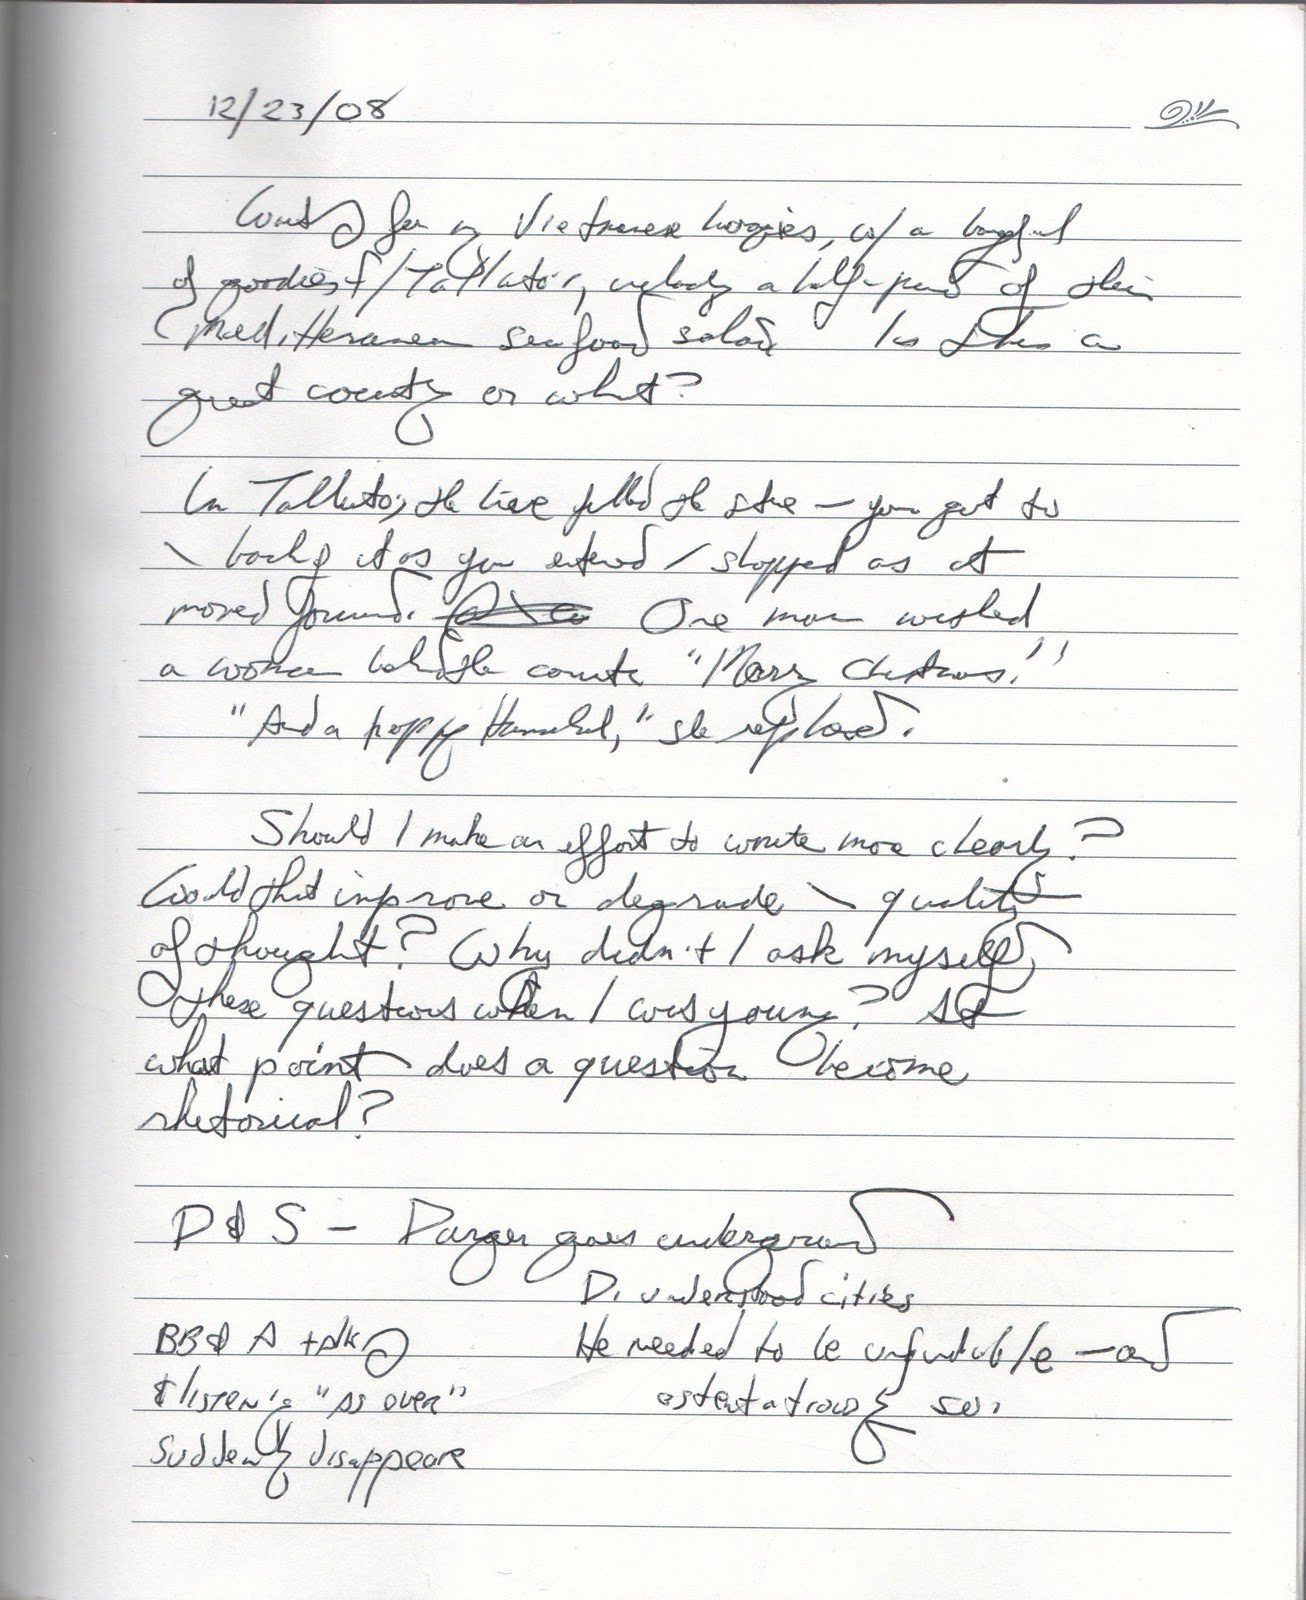 12/23/08
for my Vietnamese hoagies, w/ a bagful
of goodies f/ Talluto's, a half-pound of their
Mediterranean seafood salad. Is this a
great country or what?
In Talluto's, the line filled the store – you got to
\ back of it as you entered / stopped as it
moved forward. One man wished
a woman behind the counter "Merry Christmas!"
"And a happy Hanukah," she replied.
Should I make an effort to write more clearly?
Would that improve or degrade \ quality
of thought? Why didn't I ask myself
these questions when I was young? At
what point does a question become
rhetorical?
D & S – Darger goes underground
D. understood cities
BB & A talkg
He needed to be unfindable – and
& listen'g "As over"
ostentatiously so.
suddenly disappeare